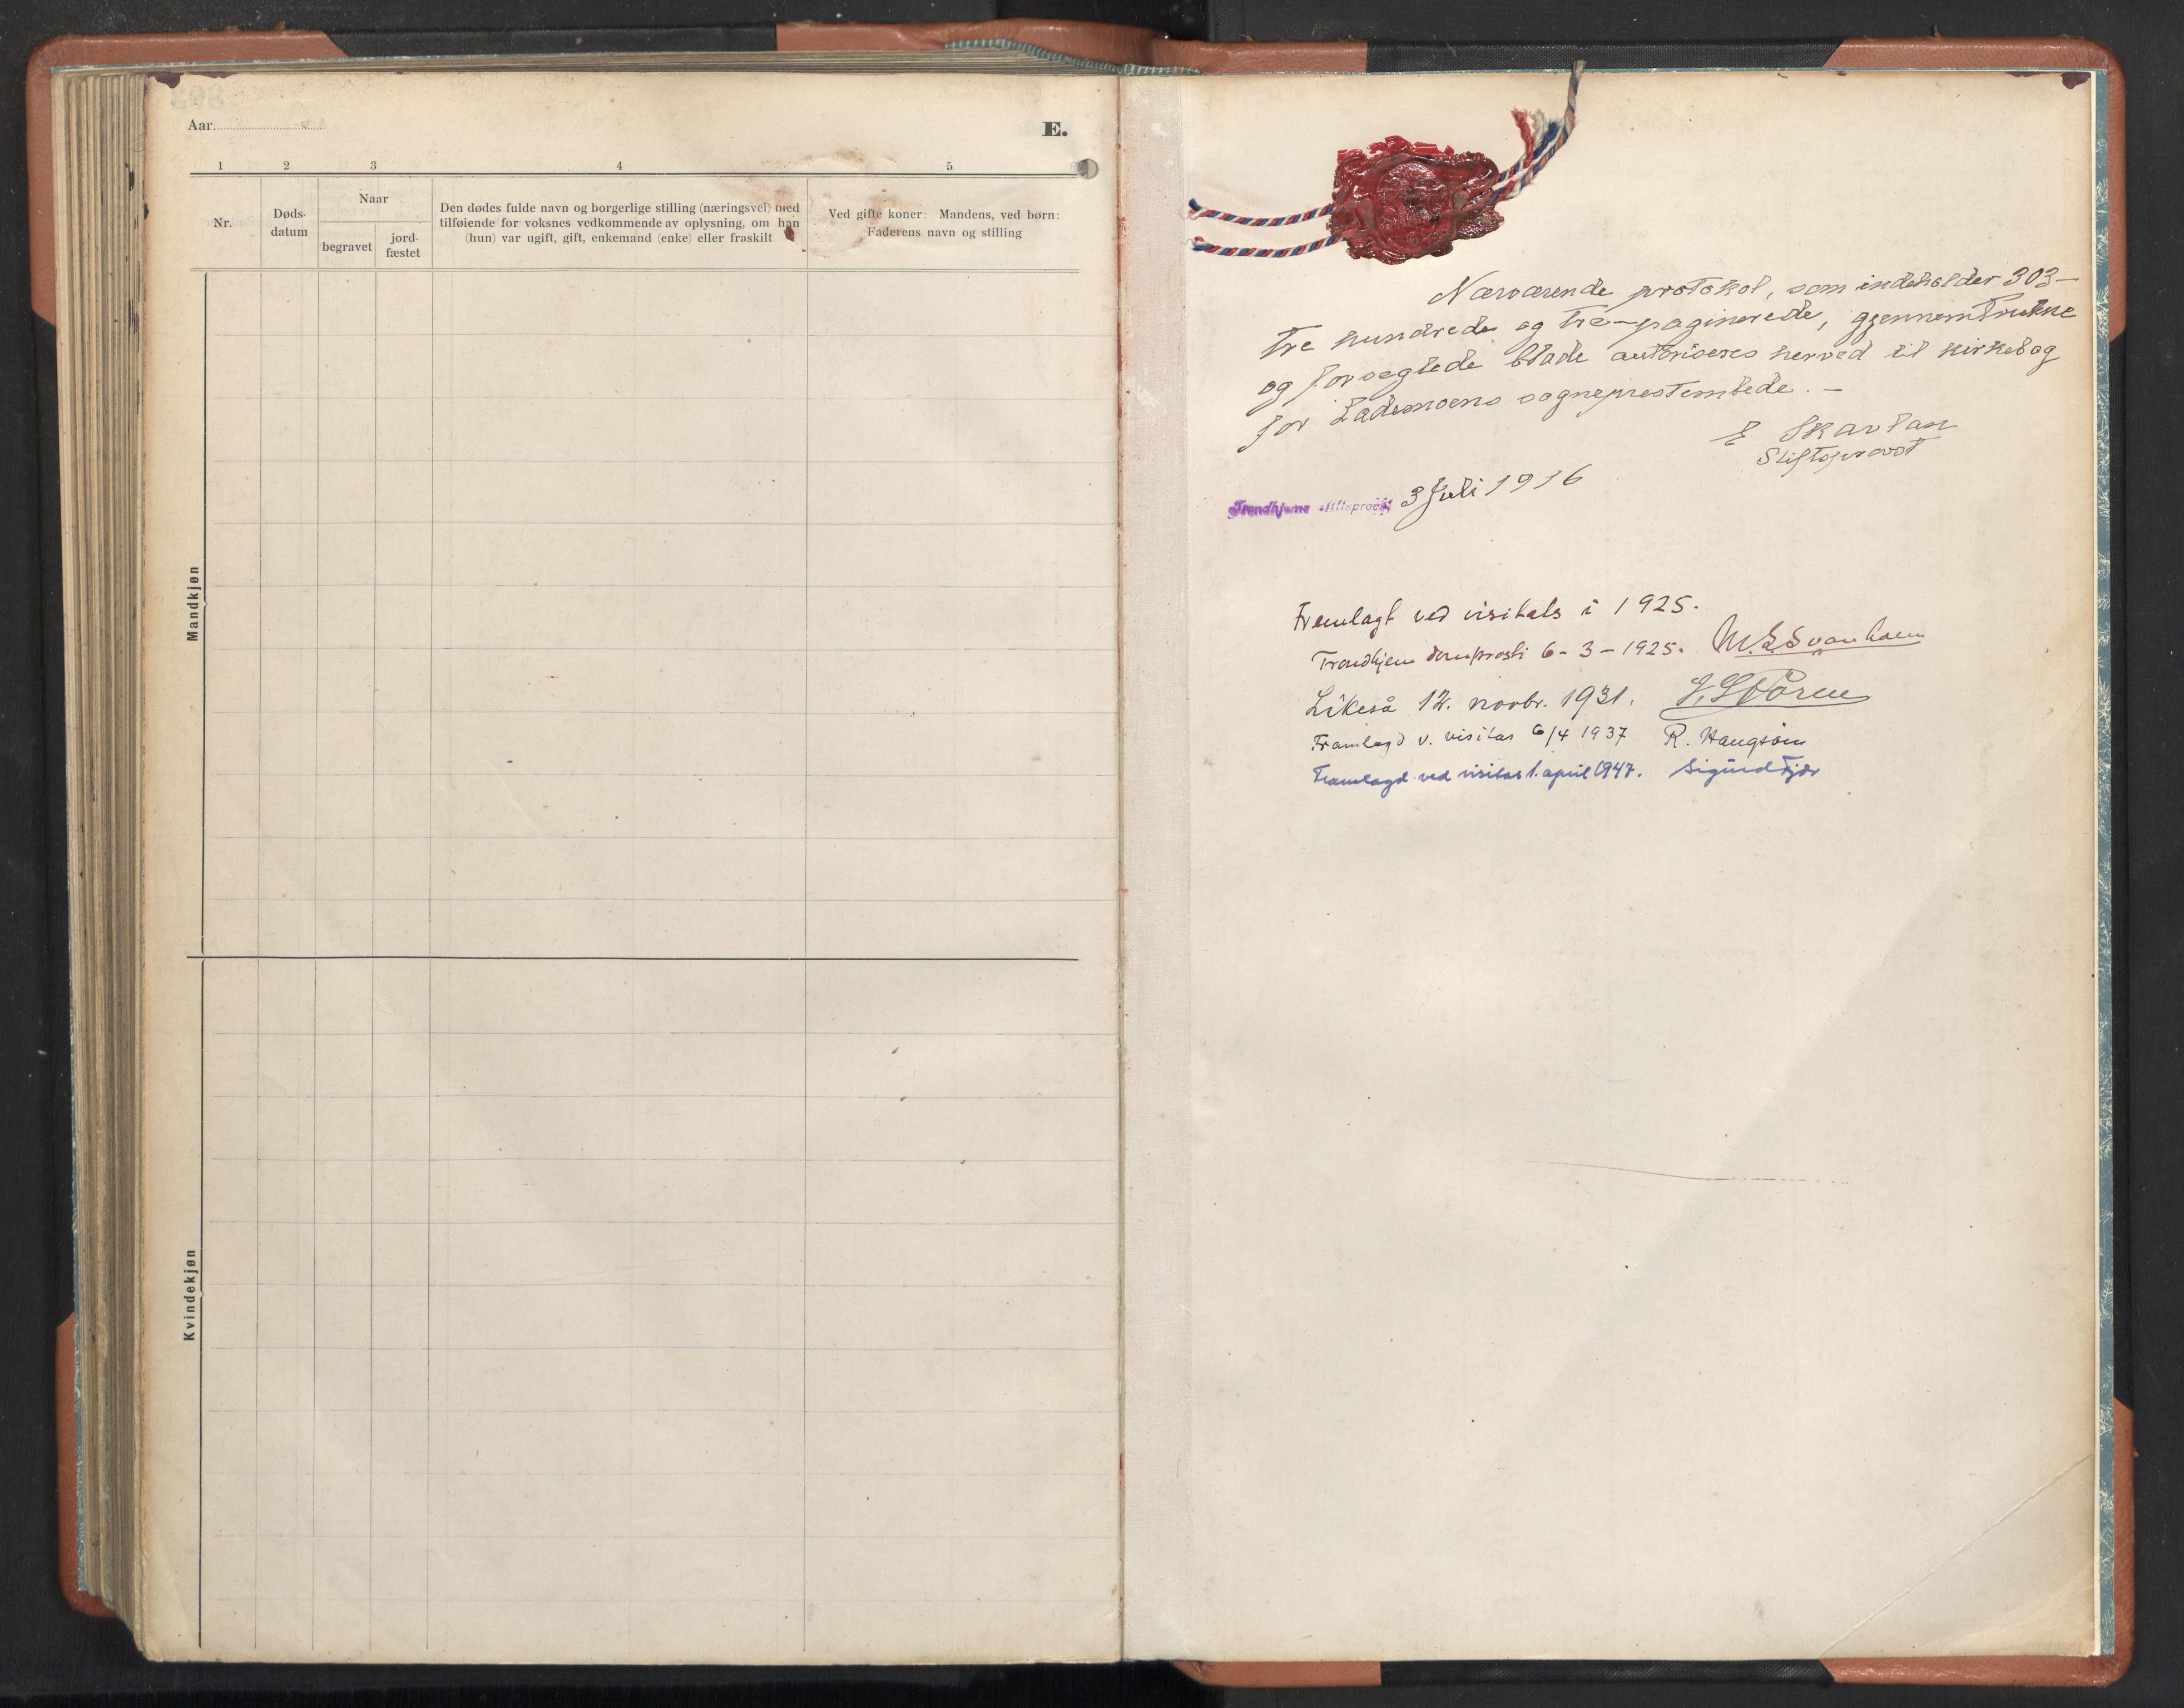 Aar.
E.
1 2 3 4 5
Nr.
Døds-
datum
Naar
begravet
jord-
fæstet
Den dødes fulde navn og borgerlige stilling (næringsvei) med
tilføiende for voksnes vedkommende av oplysning, om han
(hun) var ugift, gift, enkemand (enke) eller fraskilt
Ved gifte koner: Mandens, ved børn:
Faderens navn og stilling
Mandkjøn
Kvindekjøn
Nærværende protokol, som indeholder 303-
tre hundrede og tre-paginerede, gjennemtrukne
og forseglede blade autoriseres herved til kirkebog
for Lademoens sogneprestembede. -
E Skavlan
Stiftsprovst
Trondhjems stiftsprosti 3 Juli 1916
Fremlagt ved visitats i 1925.
Trondhjem domprosti 6-3-1925.
Likeså 12. novbr. 1931.
Framlagd v. visitas 6/4 1937 R. Haugsöen
Framlagd ved visitas 1. april 1947. Sigurd Fjær